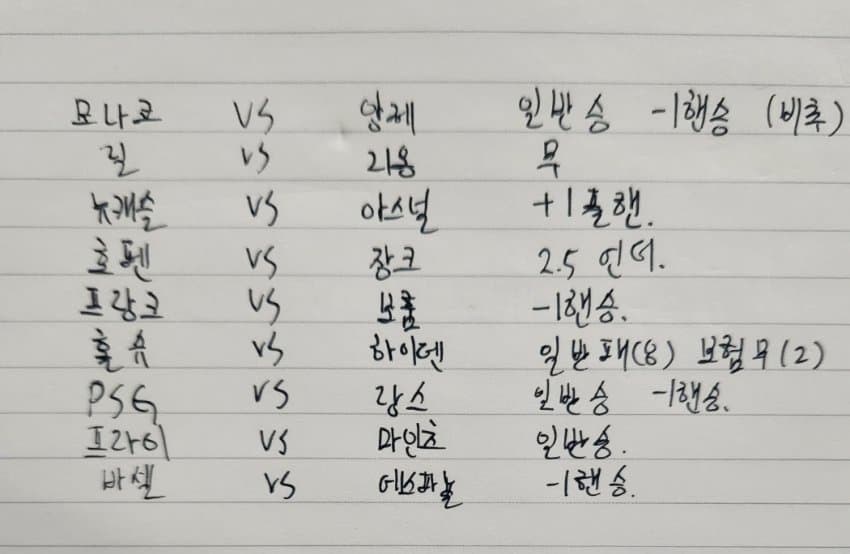 모나코 VS 앙제 일반승 -1핸승 (비추)
릴 VS 리옹 무
뉴캐슬 VS 아스널 +1 홀핸.
호펜 VS 장크 2.5 언더.
프랑크 VS 보훔 -1핸승.
홀슈 VS 하이덴 일반패(8) 보험무(2)
PSG VS 랑스 일반승 -1핸승.
프라이 VS 마인츠 일반승.
바셀 VS 에스파뇰 -1핸승.